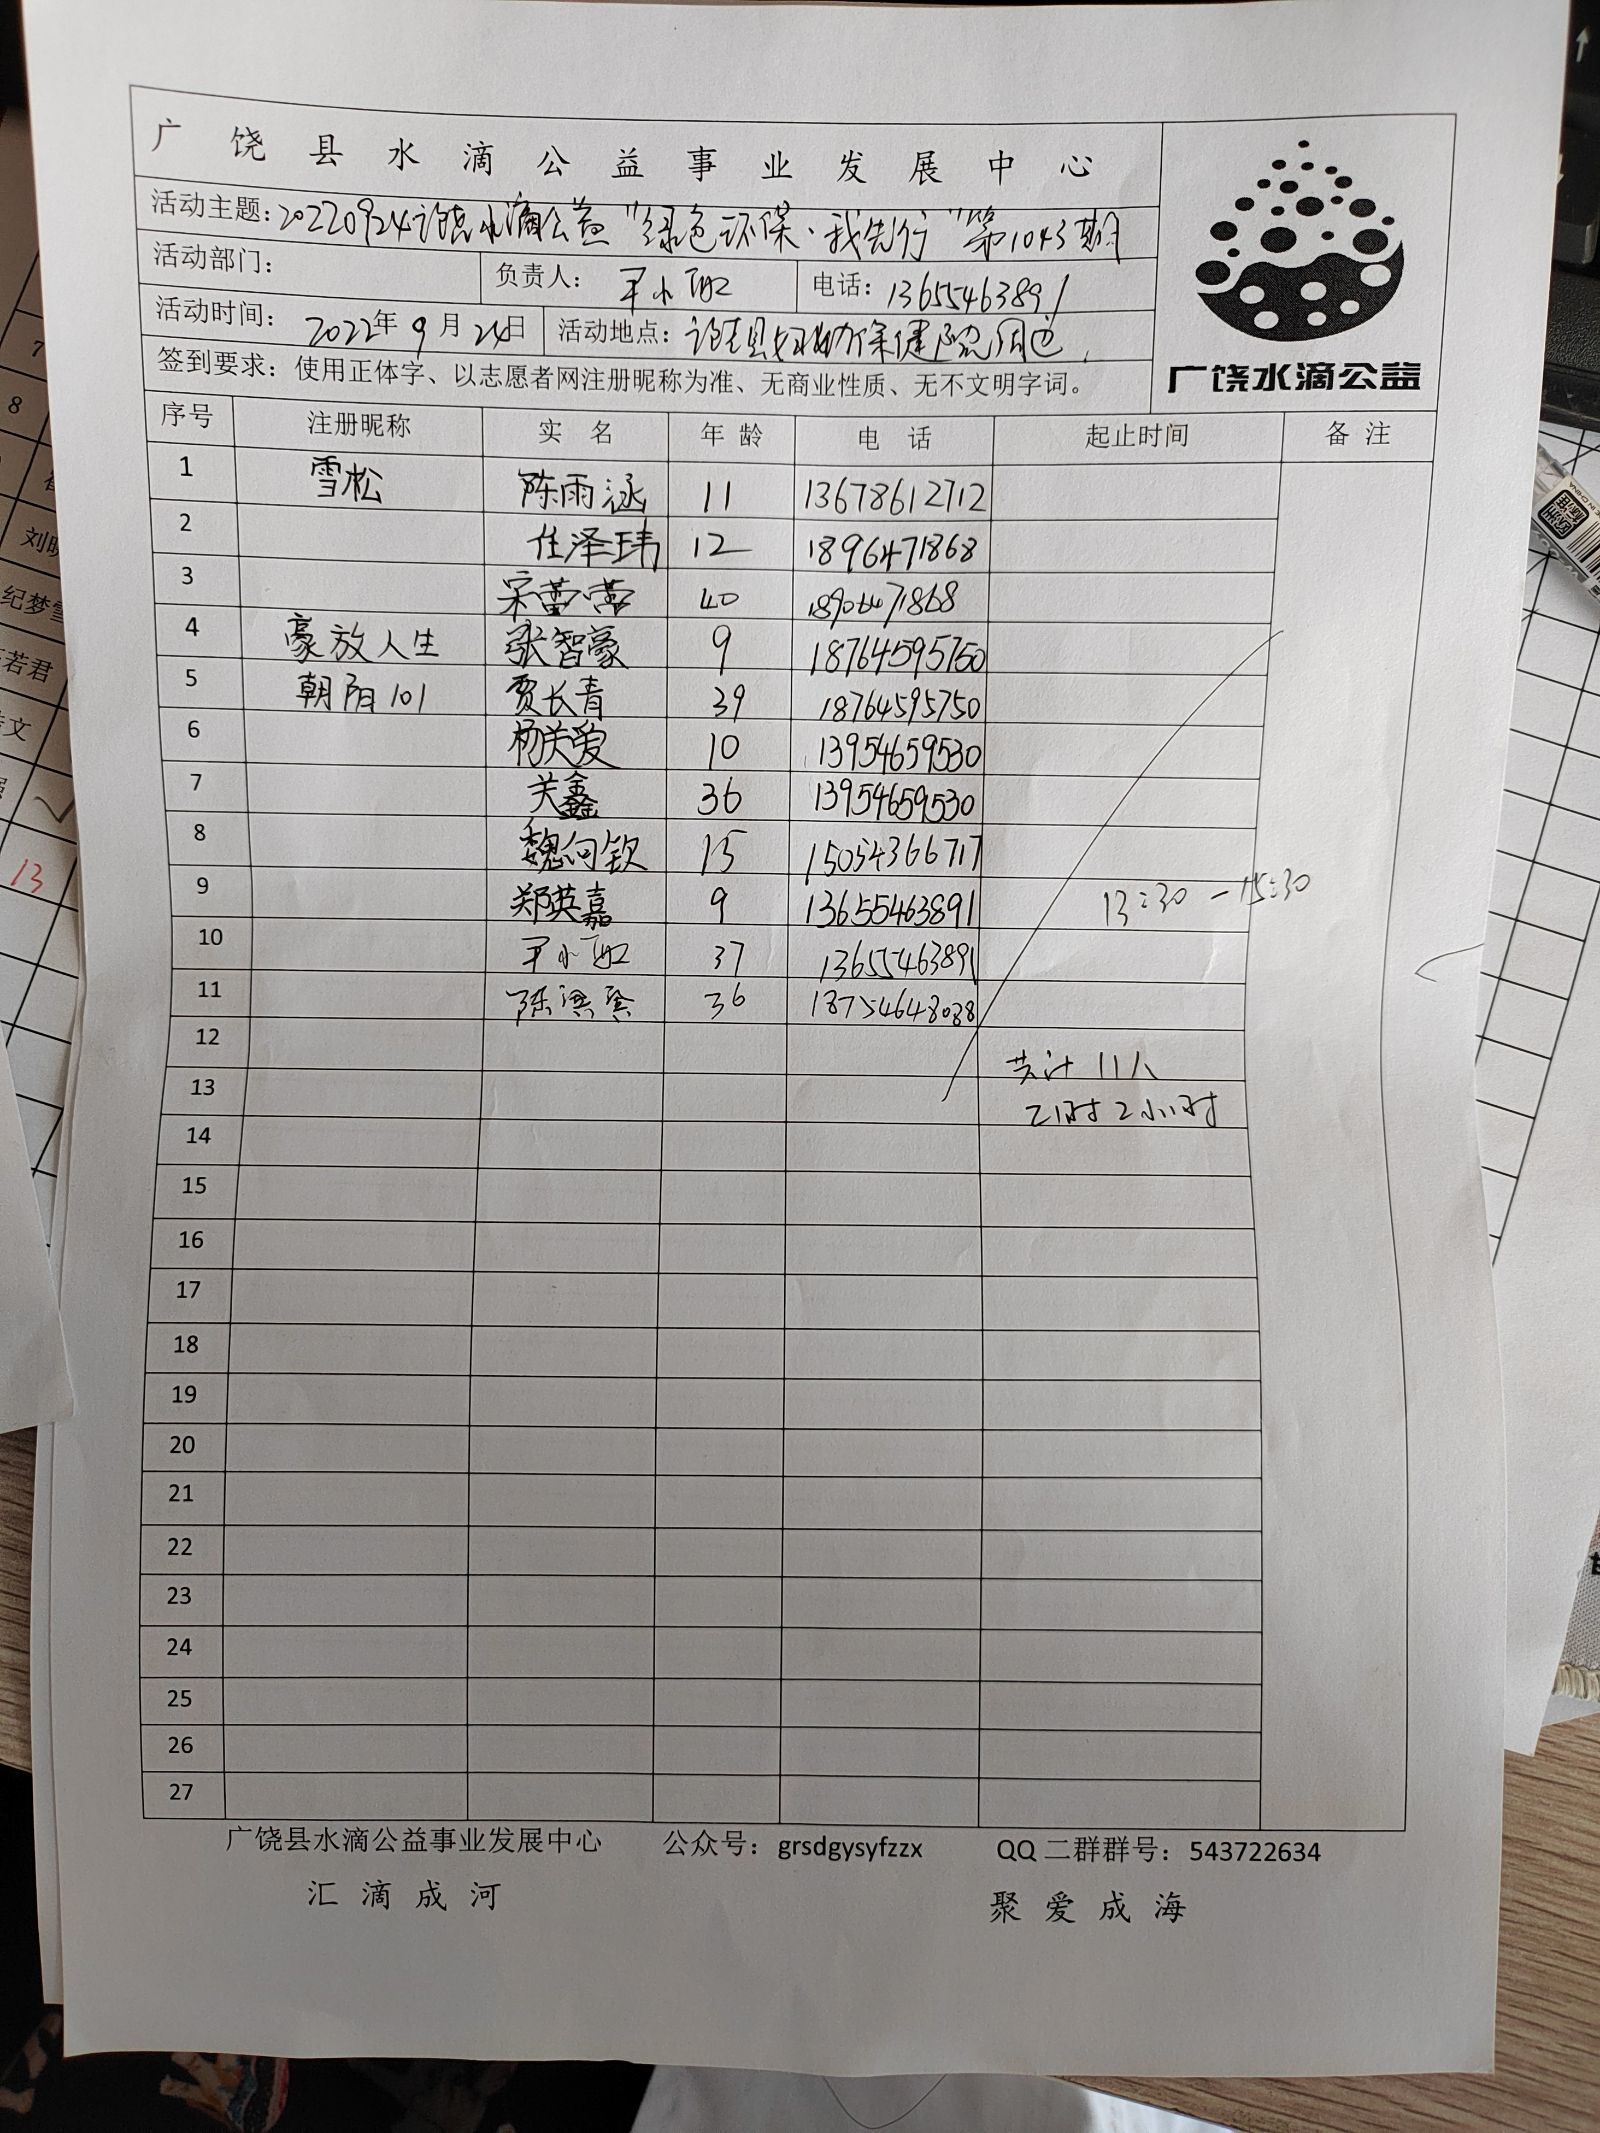 广饶县水滴公益事业发展中心
活动主题：20220924广饶水滴公益“绿色环保·我先行”第1043期
活动部门： 负责人： 电话：13655463891
活动时间：2022年9月24日 活动地点：广饶县妇幼保健院周边
签到要求：使用正体字、以志愿者网注册昵称为准、无商业性质、无不文明字词。
广饶水滴公益
序号 注册昵称 实名 年龄 电话 起止时间 备注
1 雪松 陈雨涵 11 13678612712
2 任泽玮 12 1896471868
3 宋蕾蕾 40 18906471868
4 豪放人生 张智豪 9 18764595750
5 朝阳101 贾长青 39 18764595750
6 杨关爱 10 13954659530
7 关鑫 36 13954659530
8 魏向钦 15 15054366717
9 郑英嘉 9 13655463891 13:30-15:30
10 37 13655463891
11 陈 36 18754648088
12 共计11人
13 2小时
14
15
16
17
18
19
20
21
22
23
24
25
26
27
广饶县水滴公益事业发展中心 公众号：grsdgysyfzzx QQ二群群号：543722634
汇滴成河 聚爱成海
7
8
刘
纪梦雪
若君
文
13